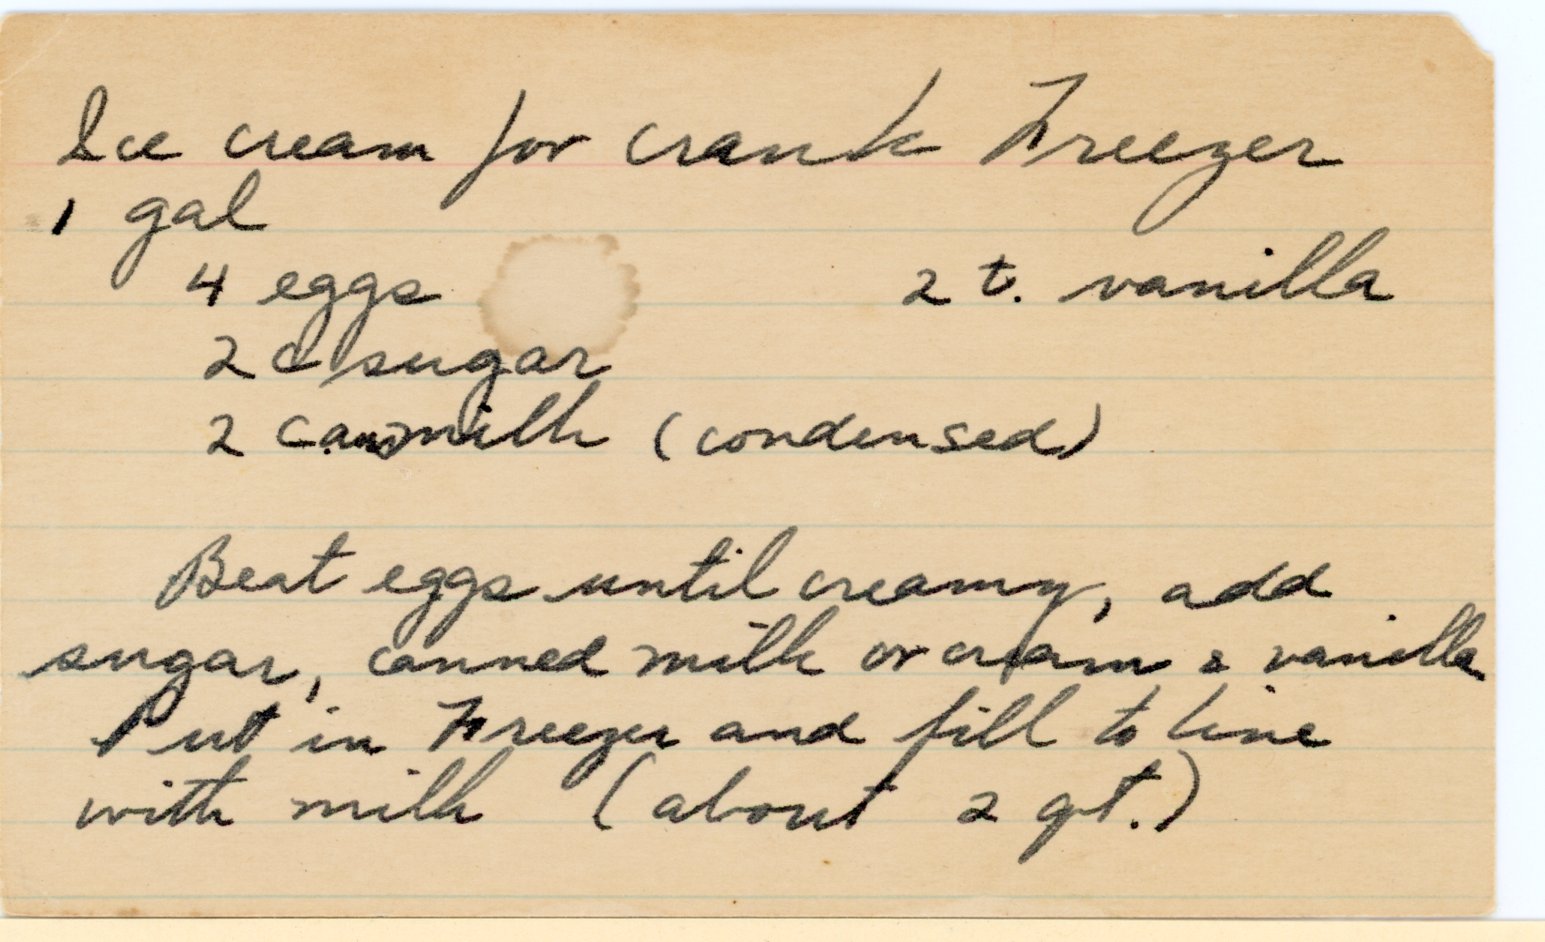 Ice cream for crank Freezer
1 gal
4 eggs 2 t. vanilla
2 c sugar
2 cans milk (condensed)
Beat eggs until creamy, add
sugar, canned milk or cream & vanilla
Put in Freezer and fill to line
with milk (about 2 qt.)